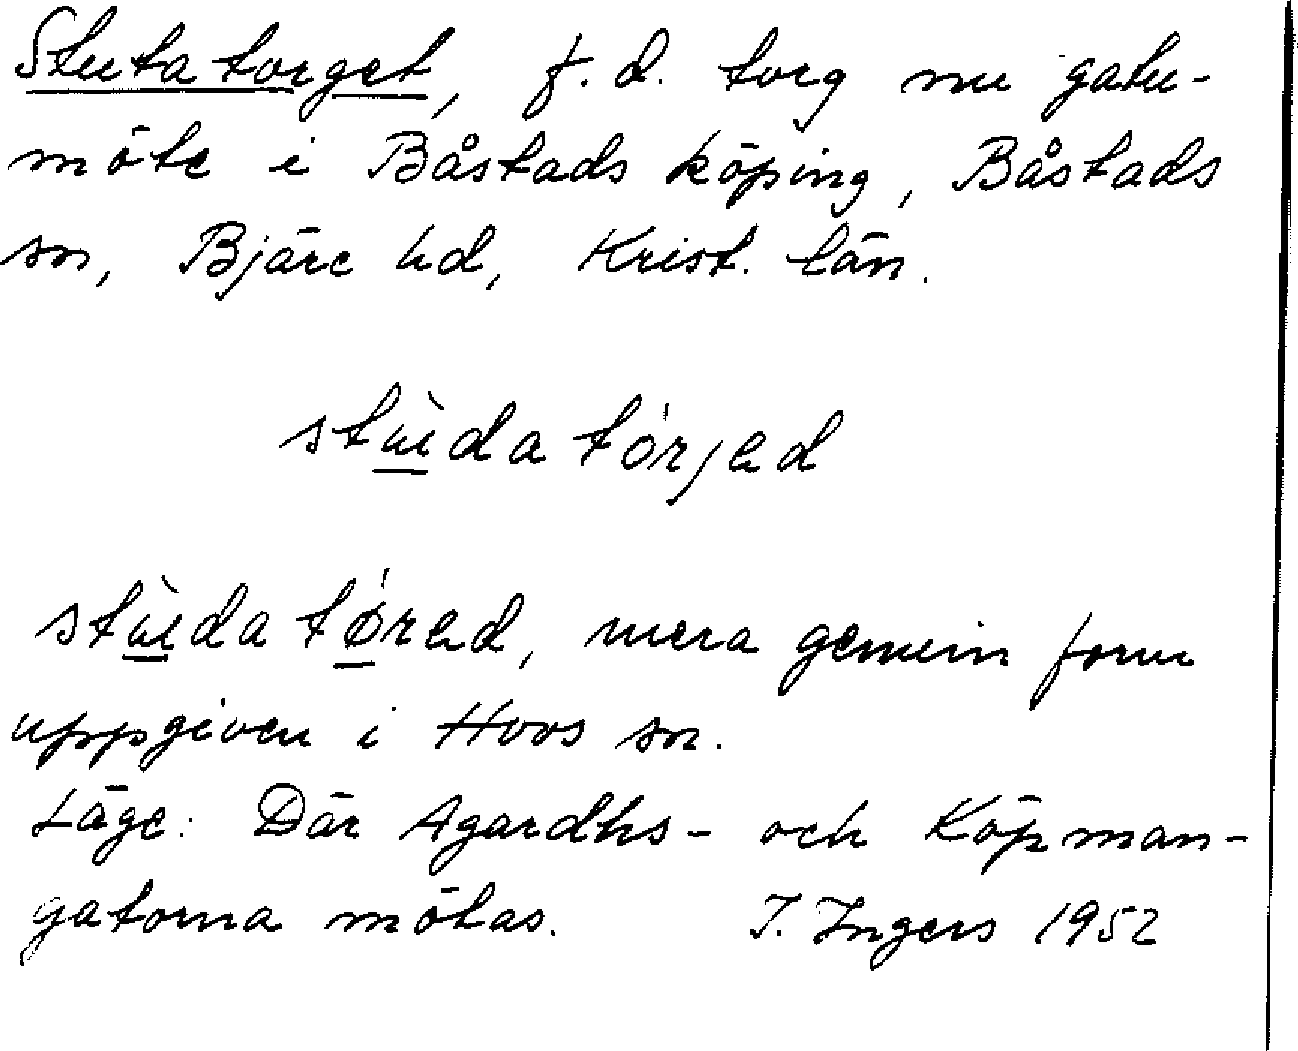 Stutatorget, f.d. torg nu gatu-
möte i Båstads köping, Båstads
sn, Bjäre hd, Krist. län.
stùdatórjad
stùdatǿrad, mera gemein form
uppgiven i Hovs sn.
Läge: Där Agardhs- och Köpman-
gatorna mötas. I. Ingers 1952